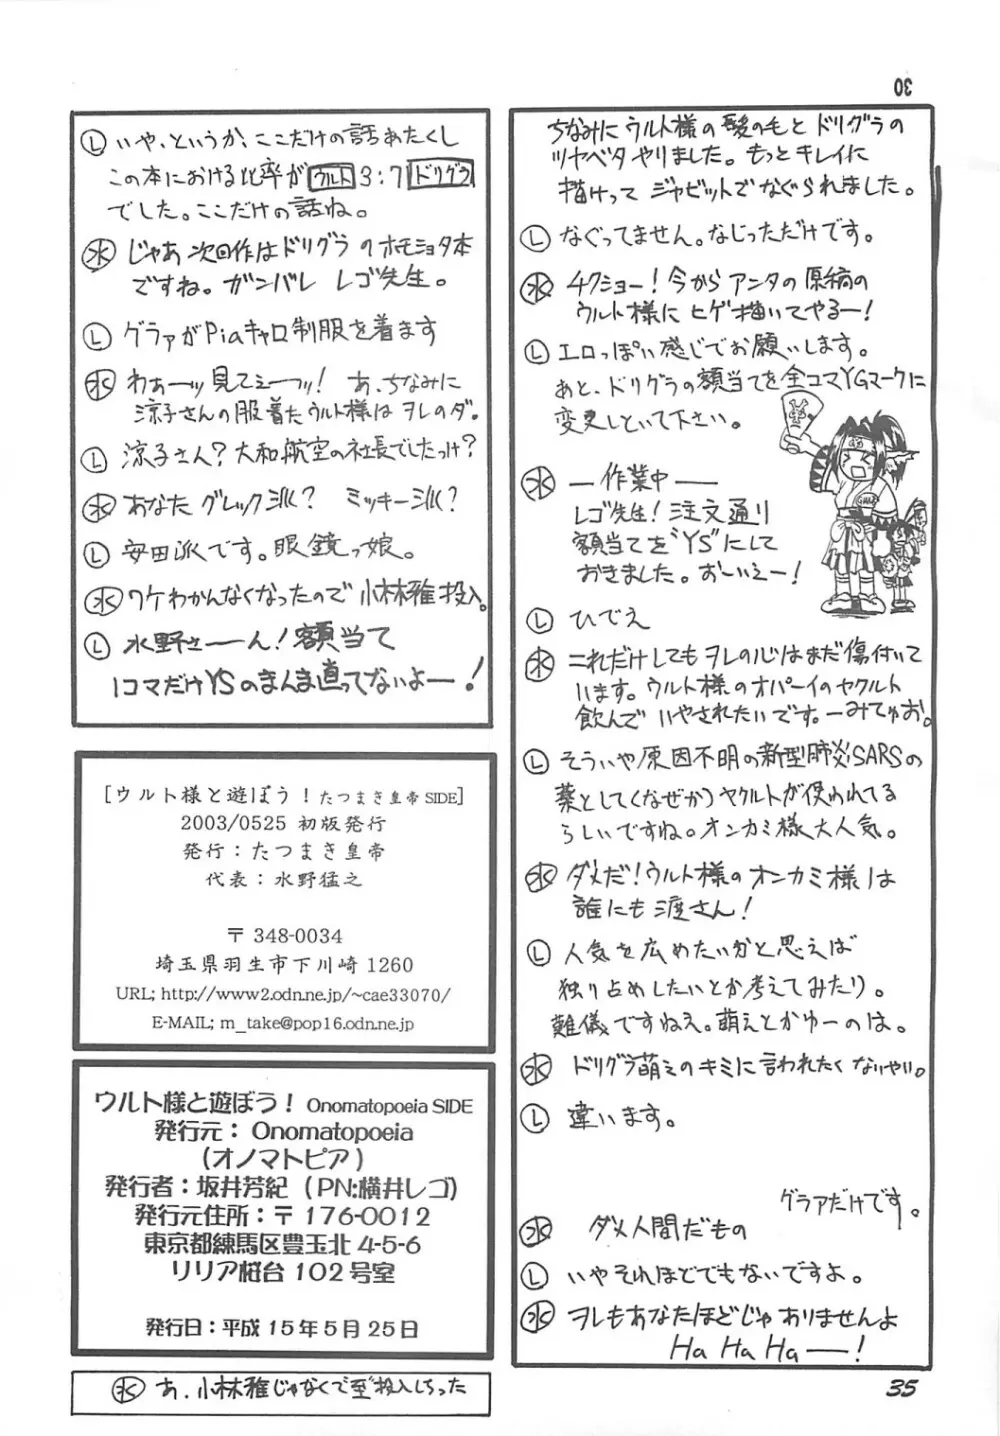 30
ちなみにウルト様の髪の毛とドリグラの
ツヤベタやりました。もっとキレイに
描けって ジャビットでなぐられました。
Ⓛ なぐってません。なじっただけです。
㊌ チクショー!今からアンタの原稿の
ウルト様に ヒゲ描いてやるー!
Ⓛ エロっぽい感じでお願いします。
あと、ドリグラの額当てを全コマYGマークに
変更しといて下さい。
㊌ ―作業中―
レゴ先生!注文通り
額当てを"YS"にして
おきました。おーいえー!
Ⓛ ひでえ
㊌ これだけしてもヲレの心はまだ傷付いて
います。ウルト様のオパーイのヤクルト
飲んで いやされたいです。―みてゅお。
Ⓛ そういや原因不明の新型肺炎SARSの
薬として(なぜか)ヤクルトが使われてる
らしいですね。オンカミ様大人気。
㊌ ダメだ!ウルト様のオンカミ様は
誰にも渡さん!
Ⓛ 人気を広めたいかと思えば
独り占めしたいとか考えてみたり。
難儀ですねえ。萌えとかゆーのは。
㊌ ドリグラ萌えのキミに言われたくないやい。
Ⓛ 違います。
グラアだけです。
㊌ ダメ人間だもの
Ⓛ いやそれほどでもないですよ。
㊌ ヲレもあなたほどじゃありませんよ
Ha Ha Ha―!
Ⓛ いや、というか、ここだけの話あたくし
この本における比率がウルト3:7ドリグラ
でした。ここだけの話ね。
㊌ じゃあ次回作はドリグラのホモショタ本
ですね。ガンバレ レゴ先生。
Ⓛ グラァがPiaキャロ制服を着ます
㊌ わぁーッ見てぇーッ! あ、ちなみに
涼子さんの服着たウルト様はヲレのダ。
Ⓛ 涼子さん?大和航空の社長でしたっけ?
㊌ あなた グレック派? ミッキー派?
Ⓛ 安田派です。眼鏡っ娘。
㊌ ワケわかんなくなったので 小林雅投入。
Ⓛ 水野さーーん!額当て
1コマだけYSのまんま直ってないよー!
[ウルト様と遊ぼう!たつまき皇帝SIDE]
2003/0525 初版発行
発行:たつまき皇帝
代表:水野猛之
〒348-0034
埼玉県羽生市下川崎1260
URL; http://www2.odn.ne.jp/~cae33070/
E-MAIL; m_take@pop16.odn.ne.jp
ウルト様と遊ぼう! Onomatopoeia SIDE
発行元:Onomatopoeia
(オノマトピア)
発行者:坂井芳紀(PN:横井レゴ)
発行元住所:〒176-0012
東京都練馬区豊玉北4-5-6
リリア桜台102号室
発行日:平成15年5月25日
㊌ あ、小林雅じゃなくて至投入しちった
35